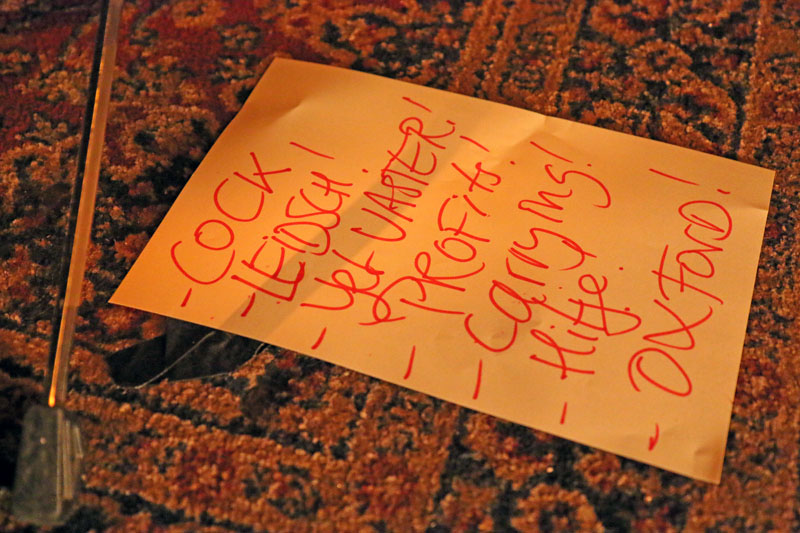 - COCK -
- LEIDSCH!
- yet VASTER! -
- PROFITS! -
- Carrying! -
- Hitje!
- OXFORD! -